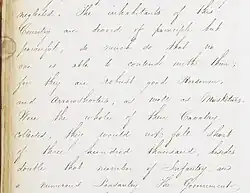 The inhabitants of this
Country are devoid of principle but
powerful, so much so that no
one is able to contend with them,
for they are robust good Horsemen,
and as well as
Were the whole of their Cavalry
collected, they would not fall short
of three hundred thousand, besides
double that number of Infantry and
a numerous The Government